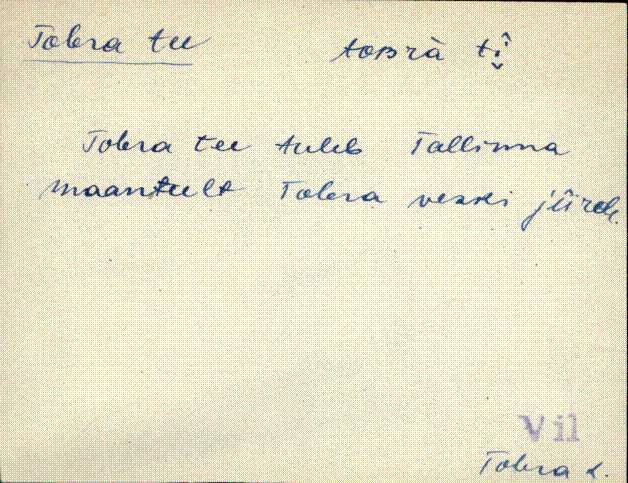 Tobra tee toʙrà tî̬
Tobra tee tuleb Tallinna
maanteelt Tobra veski jürde.
Vil
Tobra k.